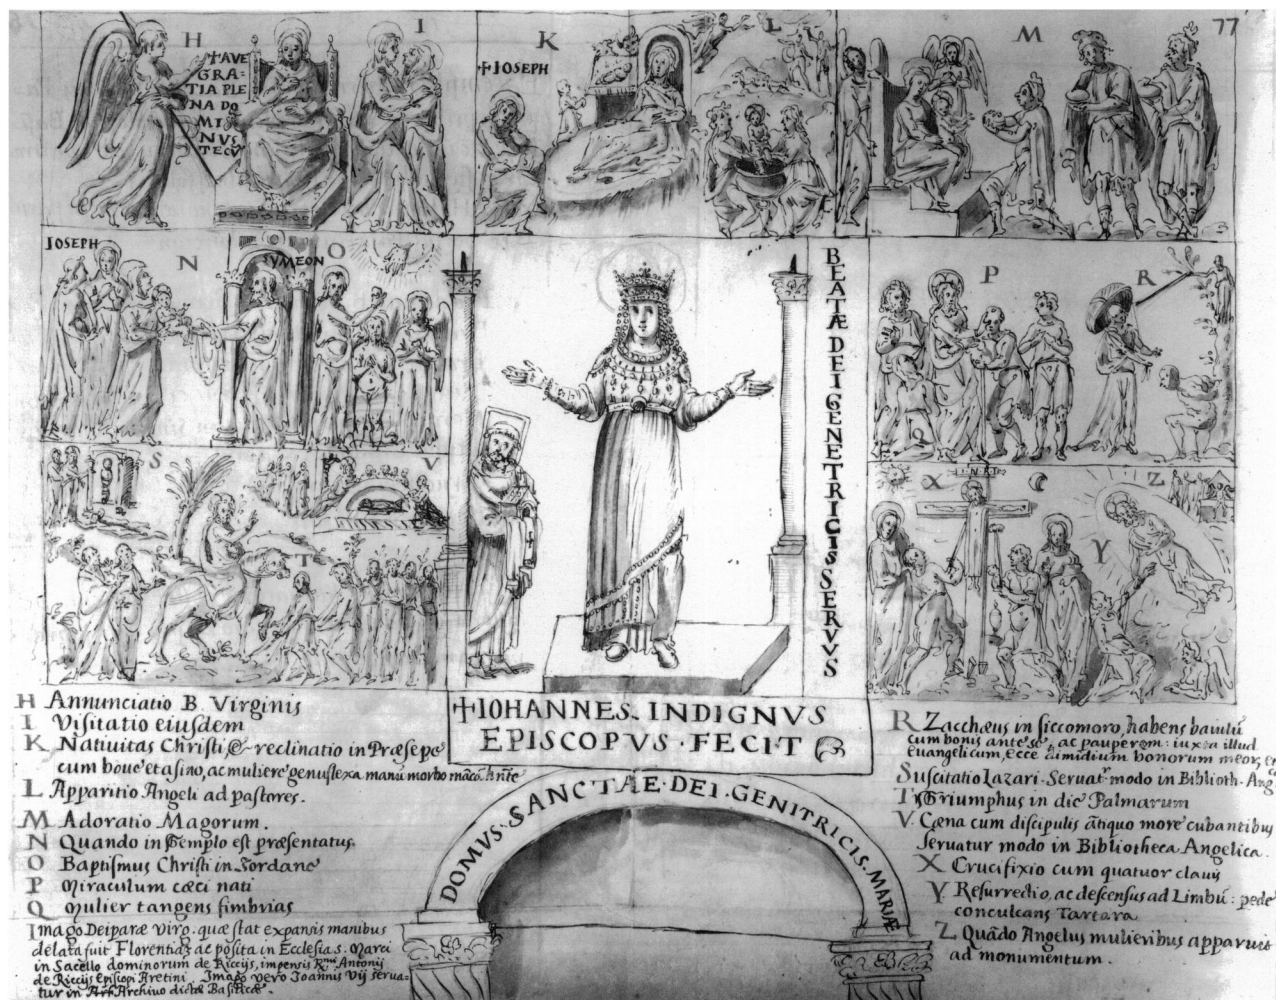 77
H
I
K
L
M
+AVE
GRA=
TIA PLE
NA DO
MI
NVS
TECV
+IOSEPH
IOSEPH
N
SYMEON
O
P
R
Q
BEATÆ DEI GENETRICIS SERVVS
S
V
T
I·N·R·I
X
Y
Z
+IOHANNES·INDIGNVS
EPISCOPVS·FECIT
DOMVS·SANCTÆ·DEI·GENITRICIS·MARIÆ
H Annunciatio B. Virginis
I Visitatio eiusdem
K Natiuitas Christi & reclinatio in Præsepe
cum boue et asino, ac muliere genuflexa manu
L Apparitio Angeli ad pastores.
M Adoratio Magorum.
N Quando in Templo est præsentatus.
O Baptismus Christi in Iordane
P Miraculum cæci nati
Q Mulier tangens fimbrias
Imago Deiparæ Virg. quæ stat expansis manibus
delata fuit Florentiã ac posita in Ecclesia S. Marci
in Sacello dominorum de Riccijs, impensis Rmi Antonij
de Riccijs Episcopi Aretini. Imago vero Ioannis VIJ serua
tur in Archivo dictæ Basilicæ.
R Zacchæus in siccomoro, habens baiulũ
cum bonis ante se, ac pauperem: iuxta illud
euangelicum, ecce dimidium bonorum meor,
S Suscitatio Lazari. Seruatr modo in Biblioth. Ang
T Triumphus in die Palmarum
V. Cæna cum discipulis ãtiquo more cubantibus
seruatur modo in Bibliotheca Angelica.
X Crucifixio cum quatuor clauis
Y Resurrectio, ac descensus ad Limbũ: pede
conculcans Tartara
Z Quãdo Angelus mulieribus apparuit
ad monumentum.